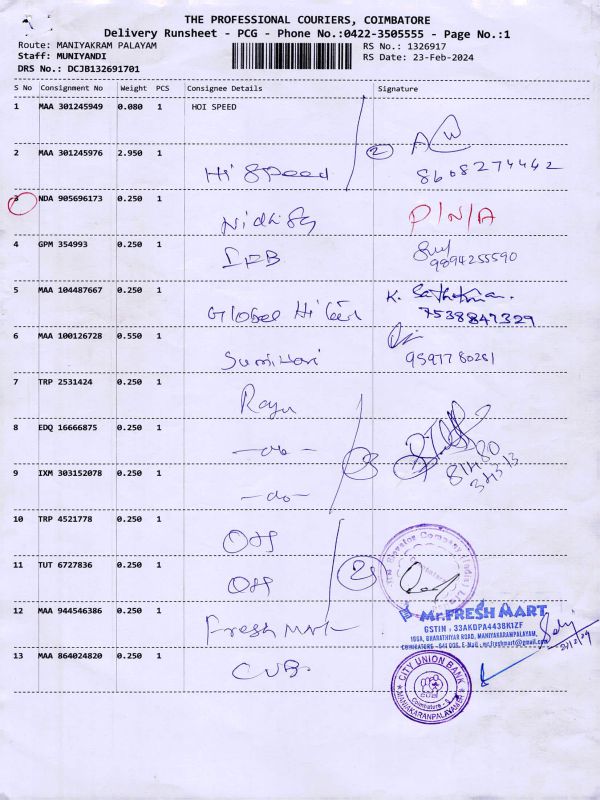 THE PROFESSIONAL COURIERS, COIMBATORE
Delivery Runsheet - PCG - Phone No.:0422-3505555 - Page No.:1
Route: MANIYAKRAM PALAYAM
RS No.: 1326917
Staff: MUNIYANDI
RS Date: 23-Feb-2024
DRS No.: DCJB132691701
S No Consignment No Weight PCS Consignee Details Signature
1 MAA 301245949 0.080 1 HOI SPEED
2 MAA 301245976 2.950 1 Hi Speed 2
8608274442
3 NDA 905696173 0.250 1 P/N/A
4 GPM 354993 0.250 1 IFB
9894255590
5 MAA 104487667 0.250 1 Global Hi K.
7538847329
6 MAA 100126728 0.550 1 Sumi Hari
9597780261
7 TRP 2531424 0.250 1 Raju
8 EDQ 16666875 0.250 1 -do-
9 IXM 303152078 0.250 1 -do- 3
81480
34313
10 TRP 4521778 0.250 1
11 TUT 6727836 0.250 1 2
12 MAA 944546386 0.250 1 Fresh Mart
Mr.FRESH MART
GSTIN : 33AKDPA4438K1ZF
105A, BHARATHIYAR ROAD, MANIYAKARAMPALAYAM,
COIMBATORE - 641 006. E-Mail : mr.freshmart@gmail.com
13 MAA 864024820 0.250 1 CUB
CITY UNION BANK
Coimbatore
MANIAKARANPALAYAM